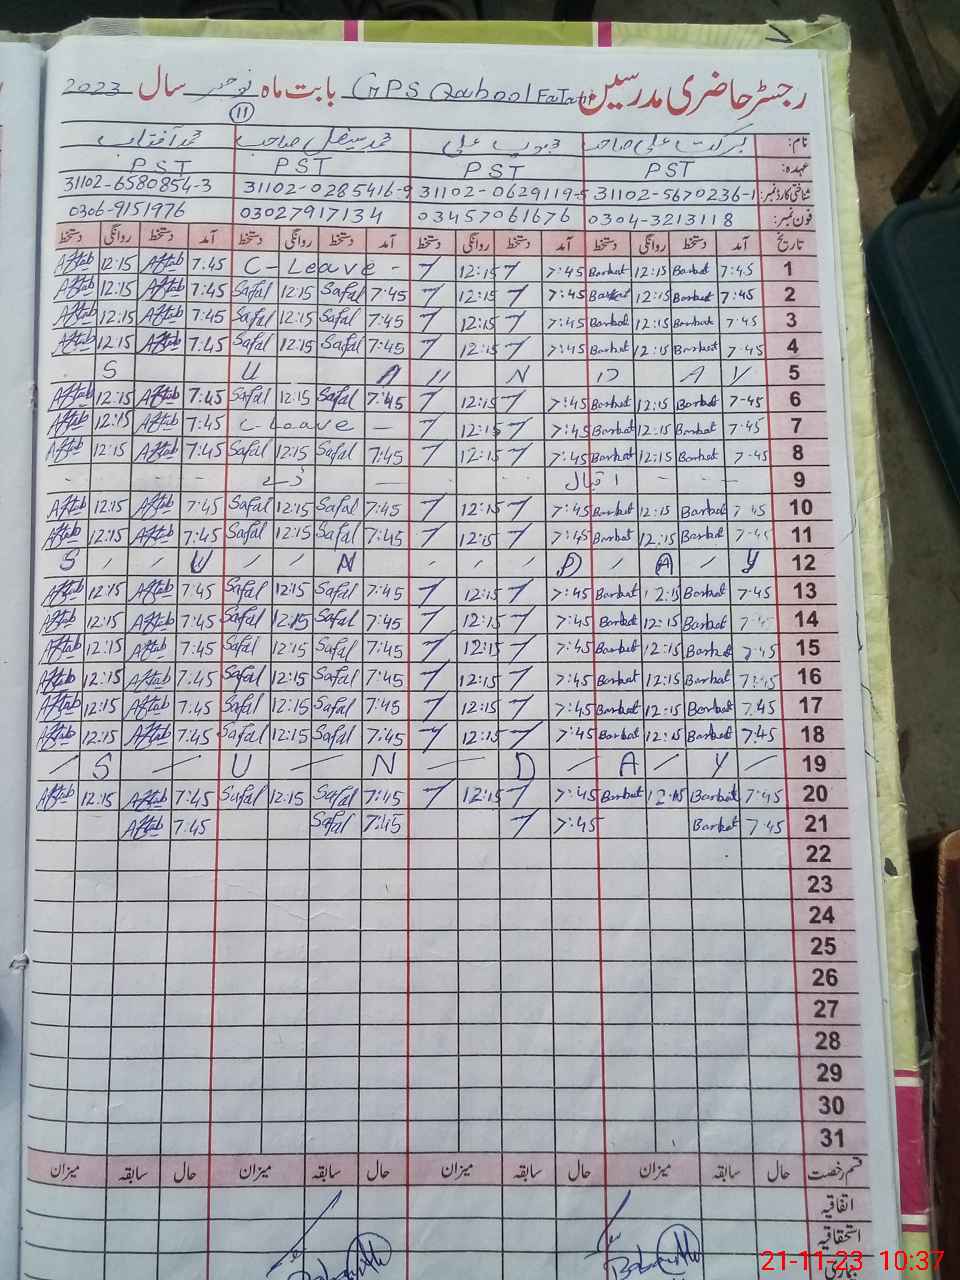 رجسٹر حاضری مدرسین GPS Qabool Fatani بابت ماہ نومبر سال 2023
11
نام: برکت علی صاحب محبوب علی محمد سیفل صاحب محمد آفتاب
عہدہ: PST PST PST PST
شناختی کارڈ نمبر: 31102-5670236-1 31102-0629119-5 31102-0285416-9 31102-6580854-3
فون نمبر: 0304-3213118 03457061676 03027917134 0306-9151976
تاریخ آمد دستخط روانگی دستخط آمد دستخط روانگی دستخط آمد دستخط روانگی دستخط آمد دستخط روانگی دستخط
1 7:45 Barkat 12:15 Barkat 7:45 12:15 C-Leave - 7:45 Aftab 12:15 Aftab
2 7:45 Barkat 12:15 Barkat 7:45 12:15 7:45 Safal 12:15 Safal 7:45 Aftab 12:15 Aftab
3 7:45 Barkat 12:15 Barkat 7:45 12:15 7:45 Safal 12:15 Safal 7:45 Aftab 12:15 Aftab
4 7:45 Barkat 12:15 Barkat 7:45 12:15 7:45 Safal 12:15 Safal 7:45 Aftab 12:15 Aftab
5 S U N D A Y
6 7:45 Barkat 12:15 Barkat 7:45 12:15 7:45 Safal 12:15 Safal 7:45 Aftab 12:15 Aftab
7 7:45 Barkat 12:15 Barkat 7:45 12:15 C-Leave - 7:45 Aftab 12:15 Aftab
8 7:45 Barkat 12:15 Barkat 7:45 12:15 7:45 Safal 12:15 Safal 7:45 Aftab 12:15 Aftab
9 اقبال ڈے
10 7:45 Barkat 12:15 Barkat 7:45 12:15 7:45 Safal 12:15 Safal 7:45 Aftab 12:15 Aftab
11 7:45 Barkat 12:15 Barkat 7:45 12:15 7:45 Safal 12:15 Safal 7:45 Aftab 12:15 Aftab
12 S U N D A Y
13 7:45 Barkat 12:15 Barkat 7:45 12:15 7:45 Safal 12:15 Safal 7:45 Aftab 12:15 Aftab
14 7:45 Barkat 12:15 Barkat 7:45 12:15 7:45 Safal 12:15 Safal 7:45 Aftab 12:15 Aftab
15 7:45 Barkat 12:15 Barkat 7:45 12:15 7:45 Safal 12:15 Safal 7:45 Aftab 12:15 Aftab
16 7:45 Barkat 12:15 Barkat 7:45 12:15 7:45 Safal 12:15 Safal 7:45 Aftab 12:15 Aftab
17 7:45 Barkat 12:15 Barkat 7:45 12:15 7:45 Safal 12:15 Safal 7:45 Aftab 12:15 Aftab
18 7:45 Barkat 12:15 Barkat 7:45 12:15 7:45 Safal 12:15 Safal 7:45 Aftab 12:15 Aftab
19 S U N D A Y
20 7:45 Barkat 12:15 Barkat 7:45 12:15 7:45 Safal 12:15 Safal 7:45 Aftab 12:15 Aftab
21 7:45 Barkat 7:45 7:45 Safal 7:45 Aftab
22
23
24
25
26
27
28
29
30
31
قسم رخصت حال سابقہ میزان حال سابقہ میزان حال سابقہ میزان حال سابقہ میزان
اتفاقیہ
استحقاقیہ
بیماری
21-11-23 10:37